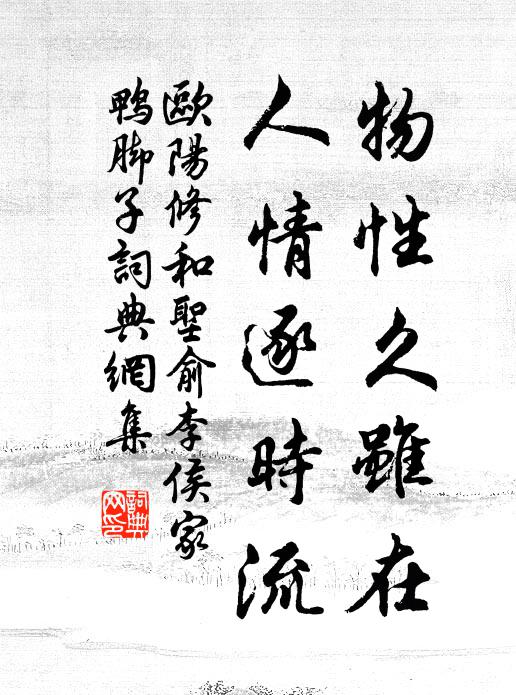 物性久雖在
人情逐時流
歐陽修和聖俞李侯家
鴨脚子詞典網集
詞典网印